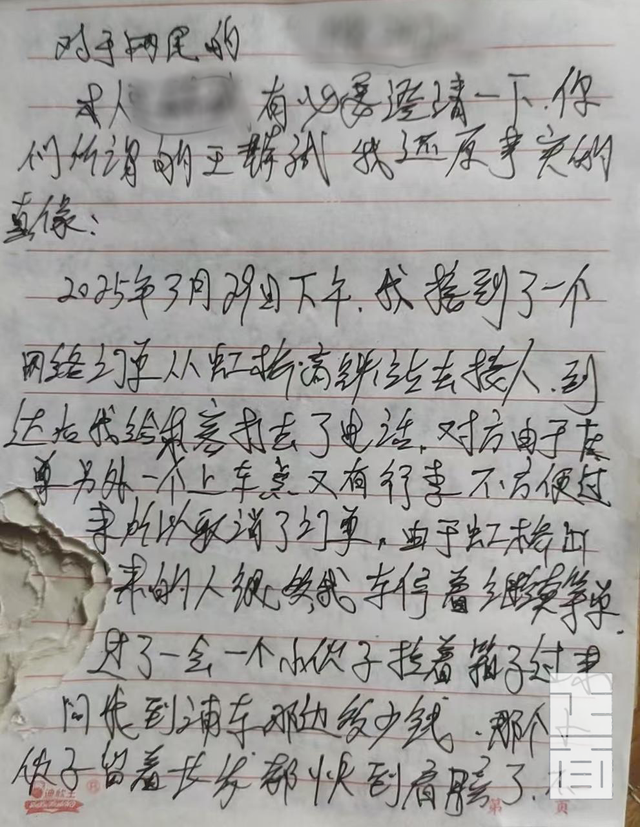 对于网民的
本人 有必要澄清一下.你
们所谓的王 我还原事实的
真像：
2025年3月29日下午.我接到了一个
网络订单从虹桥高铁站去接人.到
达后我给乘客打去了电话,对方由于在
另外一个上车点又有行李不方便过
来所以取消了订单,由于虹桥出
来的人很 我车停着继续等单.
过了一会一个小伙子拉着箱子过来
问 到浦东那边多少钱.那个小
伙子留着长发都快到肩膀了.
正面
第 页